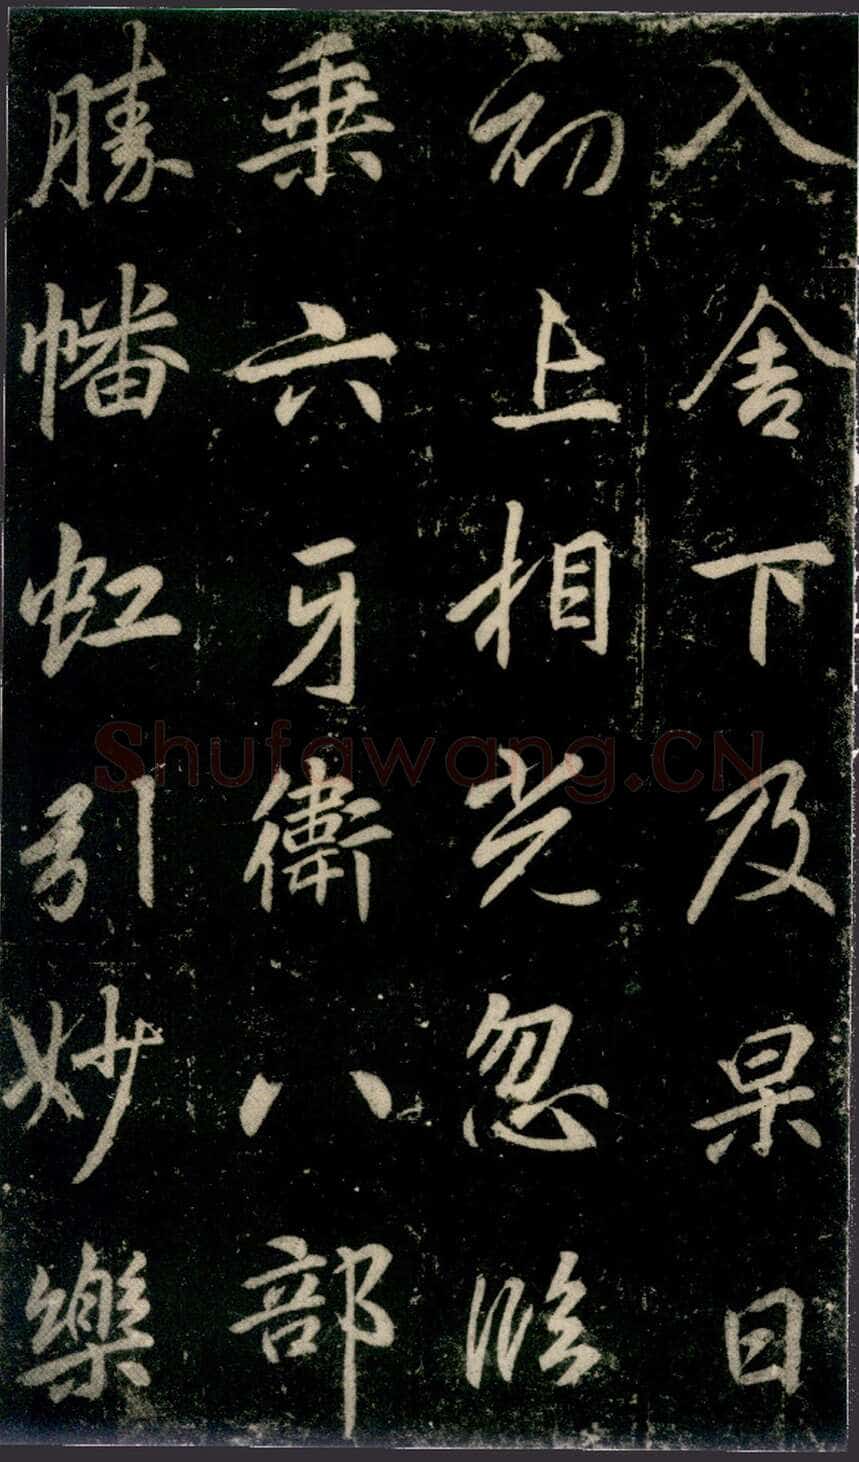 入舍下及杲日
初上相光忽臨
乘六牙衛八部
勝幡虹引妙樂
Shufawang.CN